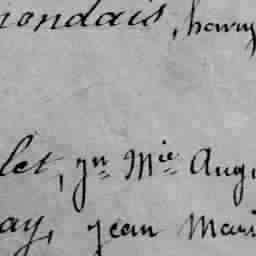 nondais, henry
let, jn Mie Augu
ay, jean Mari